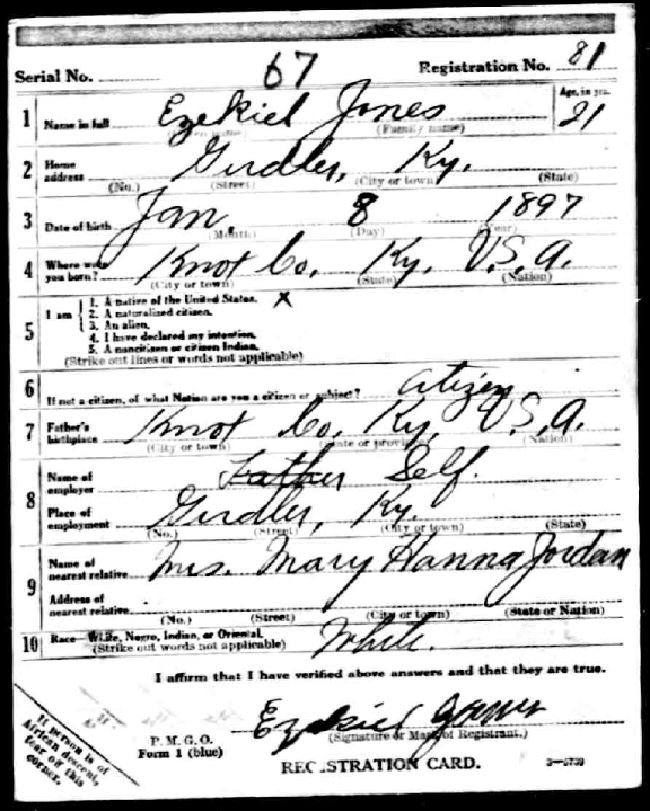 Serial No. 67 Registration No. 81
1 Name in full Ezekiel Jones Age, in yrs. 21
(Given name) (Family name)
2 Home address Girdler, Ky.
(No.) (Street) (City or town) (State)
3 Date of birth Jan. 8 1897
(Month) (Day) (Year)
4 Where were you born? Knot Co. Ky. U.S.A.
(City or town) (State) (Nation)
5 I am
1. A native of the United States. X
2. A naturalized citizen.
3. An alien.
4. I have declared my intention.
5. A noncitizen or citizen Indian.
(Strike out lines or words not applicable)
6 If not a citizen, of what Nation are you a citizen or subject? Citizen
7 Father's birthplace Knot Co. Ky. U.S.A.
(City or town) (State or province) (Nation)
8 Name of employer Father Self.
Place of employment Girdler, Ky.
(No.) (Street) (City or town) (State)
9 Name of nearest relative Mrs. Mary Hanna Jordan
Address of nearest relative
(No.) (Street) (City or town) (State or Nation)
10 Race—White, Negro, Indian, or Oriental. White.
(Strike out words not applicable)
I affirm that I have verified above answers and that they are true.
Ezekiel Jones
(Signature or Mark of Registrant.)
P.M.G.O.
Form 1 (blue)
REGISTRATION CARD.
If person is of
African descent,
tear off this
corner.